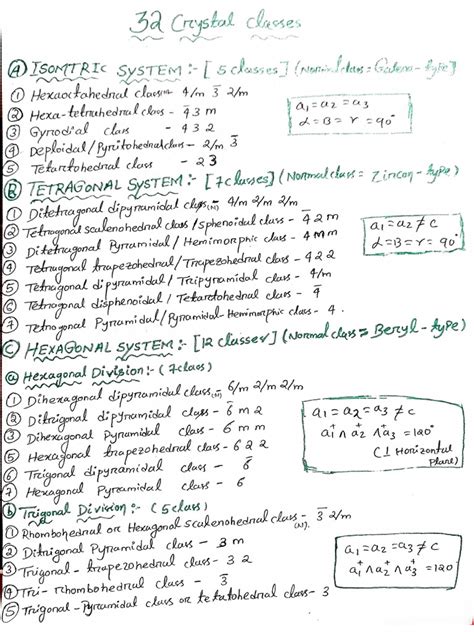 32 Crystal classes
Ⓐ ISOMTRIC SYSTEM :- [5 classes] (Normal class = Galena - type)
① Hexaoctahedral class - 4/m 3̅ 2/m
② Hexa-tetrahedral class - 4̅ 3 m
③ Gyrodial class - 4 3 2
④ Deploidal/Pyritohedral class - 2/m 3̅
⑤ Tetartohedral class - 2 3
a₁ = a₂ = a₃
α = β = γ = 90°
Ⓑ TETRAGONAL SYSTEM :- [7 classes] (Normal class = Zircon - type)
① Ditetragonal dipyramidal class (N), 4/m 2/m 2/m
② Tetragonal scalenohedral class / Sphenoidal class - 4̅ 2 m
③ Ditetragonal Pyramidal / Hemimorphic class - 4 m m
④ Tetragonal trapezohedral / Trapezohedral class - 4 2 2
⑤ Tetragonal dipyramidal / Tripyramidal class - 4/m
⑥ Tetragonal disphenoidal / Tetartohedral class - 4̅
⑦ Tetragonal Pyramidal / Pyramidal-Hemimorphic class - 4.
a₁ = a₂ ≠ c
α = β = γ = 90°
Ⓒ HEXAGONAL SYSTEM :- [12 classes] (Normal class = Beryl - type)
ⓐ Hexagonal Division :- (7 class)
① Dihexagonal dipyramidal class (N), 6/m 2/m 2/m
② Ditrigonal dipyramidal class - 6̅ m 2
③ Dihexagonal Pyramidal class - 6 m m
④
⑤ Hexagonal trapezohedral class - 6 2 2
⑥ Trigonal dipyramidal class - 6̅
⑦ Hexagonal Pyramidal class - 6
a₁ = a₂ = a₃ ≠ c
a₁⁺ ∧ a₂⁺ ∧ a₃⁺ = 120°
(⊥ Horizontal
Plane)
ⓑ Trigonal Division :- (5 class)
① Rhombohedral or Hexagonal Scalenohedral class (N), - 3̅ 2/m
② Ditrigonal Pyramidal class - 3 m
③ Trigonal - trapezohedral class - 3 2
④ Tri - rhombohedral class - 3̅
⑤ Trigonal - Pyramidal class or tetartohedral class - 3
a₁ = a₂ = a₃ ≠ c
a₁⁺ ∧ a₂⁺ ∧ a₃⁺ = 120